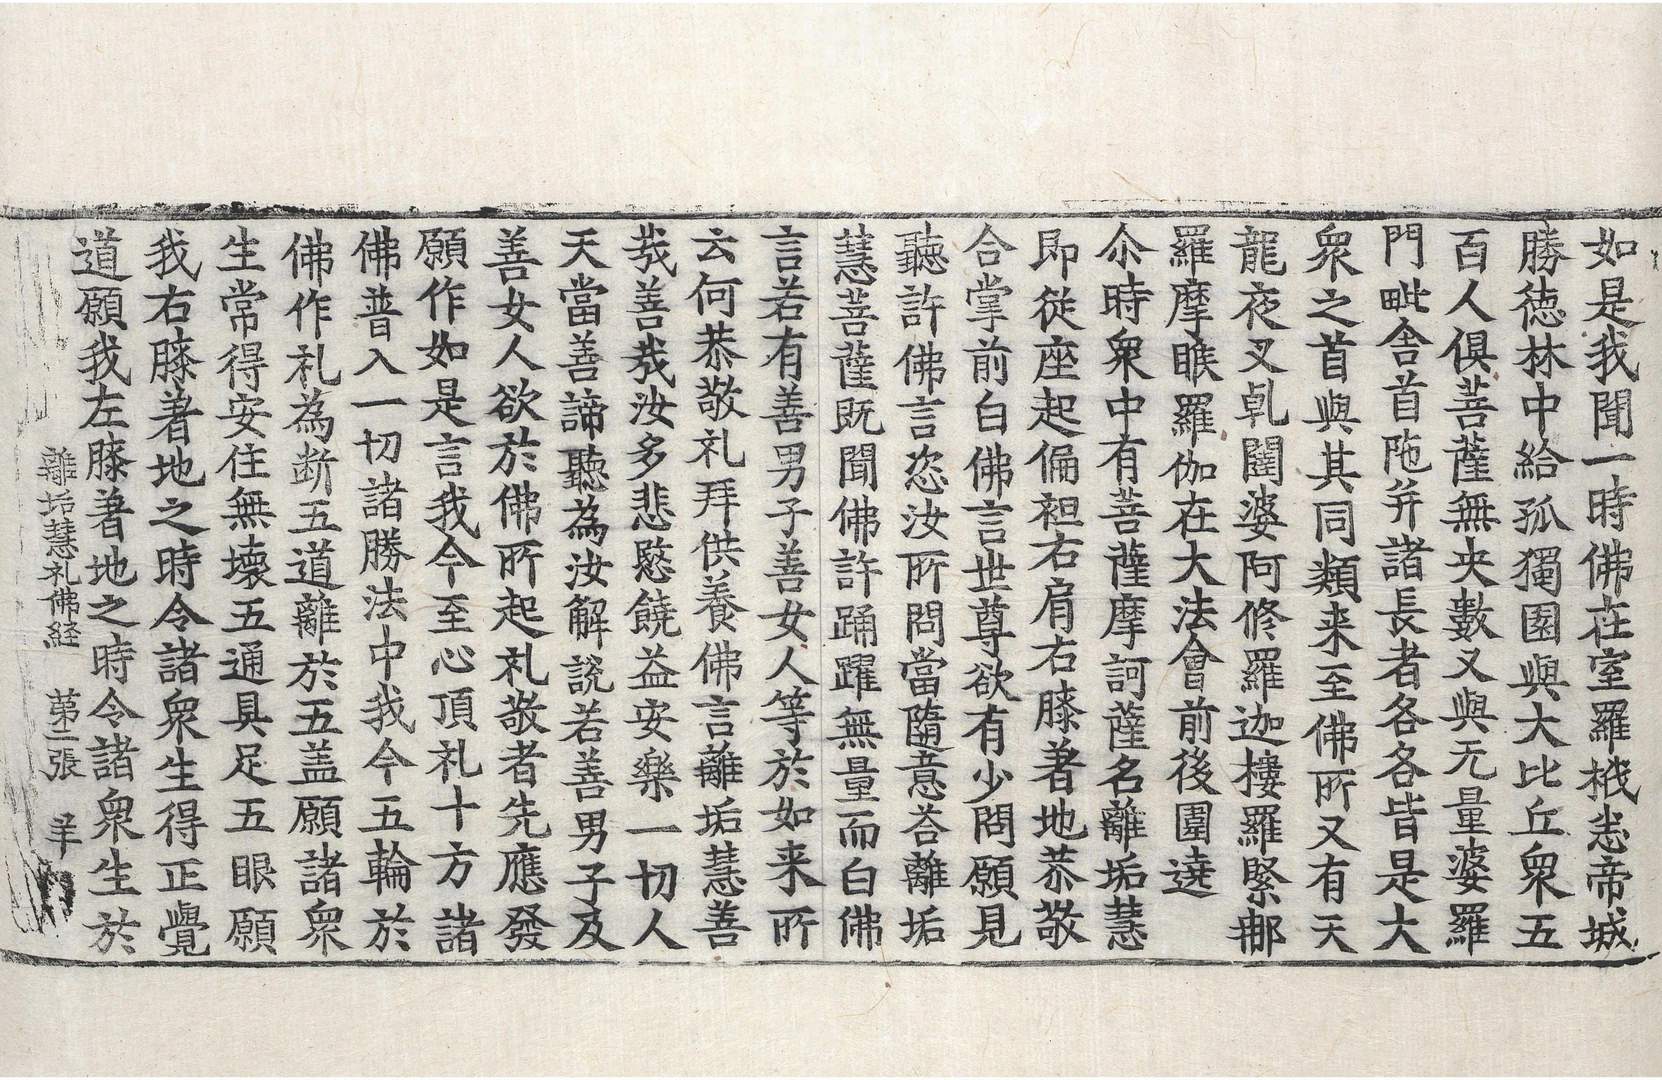 如是我聞一時佛在室羅栰悉帝城
勝徳林中給孤獨園與大比丘衆五
百人俱菩薩無央數又與无量婆羅
門毗舍首陁并諸長者各各皆是大
衆之首與其同類来至佛所又有天
龍夜叉乹闥婆阿修羅迦樓羅緊那
羅摩睺羅伽在大法會前後圍遶
尒時衆中有菩薩摩訶薩名離垢慧
即從座起偏袒右肩右膝著地恭敬
合掌前白佛言世尊欲有少問願見
聽許佛言恣汝所問當隨意荅離垢
慧菩薩既聞佛許踊躍無量而白佛
言若有善男子善女人等於如来所
云何恭敬礼拜供養佛言離垢慧善
㢤善㢤汝多悲愍饒益安樂一切人
天當善諦聽為汝解説若善男子及
善女人欲於佛所起礼敬者先應發
願作如是言我今至心頂礼十方諸
佛普入一切諸勝法中我今五輪於
佛作礼為断五道離於五盖願諸衆
生常得安住無壞五通具足五眼願
我右膝著地之時令諸衆生得正覺
道願我左膝著地之時令諸衆生於
離垢慧礼佛経 苐二張 羊